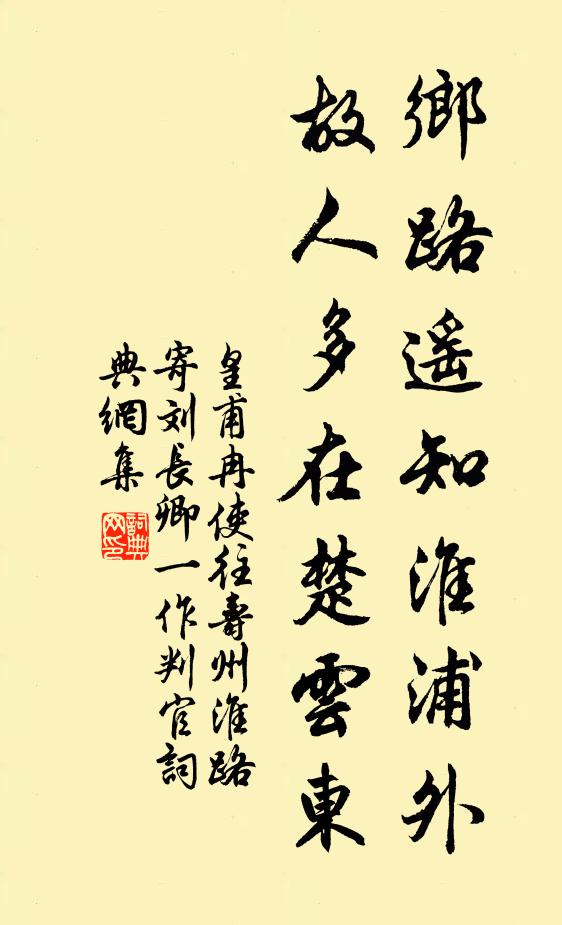 鄉路遥知淮浦外
故人多在楚雲東
皇甫冉使往壽州淮路
寄刘長卿一作判官詞
典網集
詞典
网印